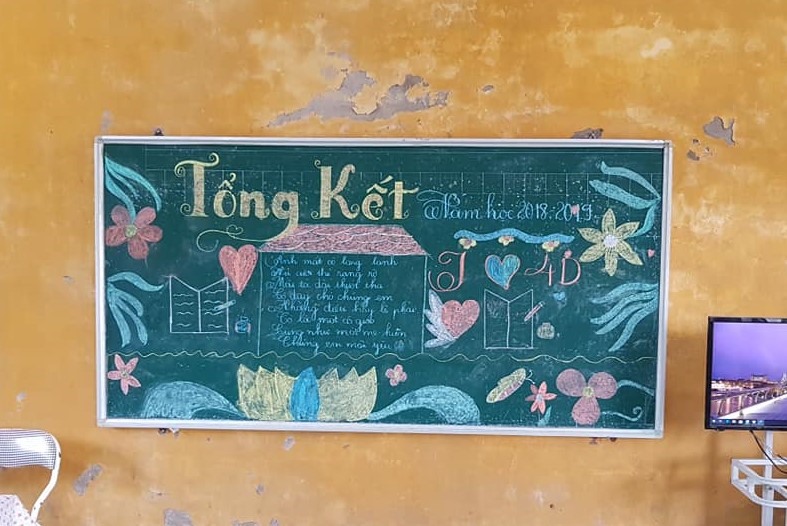 Tổng Kết
Năm học 2018-2019
I 4D
Ánh mắt cô long lanh
Nụ cười thì rạng rỡ
Mái tóc dài
Cô dạy cho chúng em
Những điều hay lẽ phải
Cô là một cô giáo
Cũng như một mẹ hiền
Chúng em mãi yêu